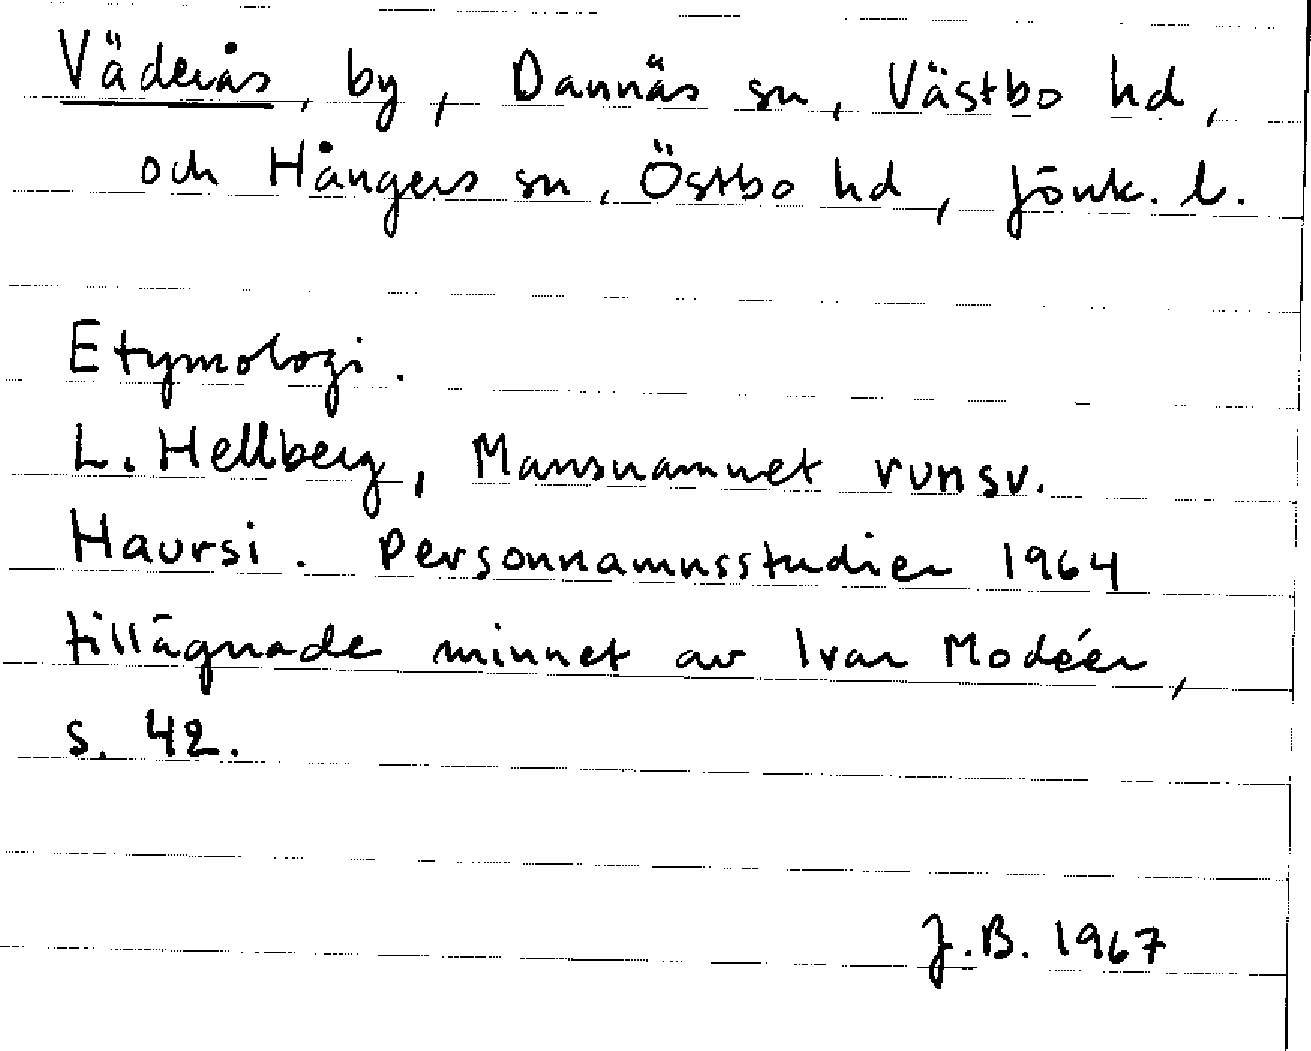 Väderås, by, Dannäs sn, Västbo hd,
och Hångers sn, Östbo hd, Jönk. l.
Etymologi.
L. Hellberg, Mansnamnet runsv.
Haursi. Personnamnsstudier 1964
tillägnade minnet av Ivar Modéer,
s. 42.
J.B. 1967